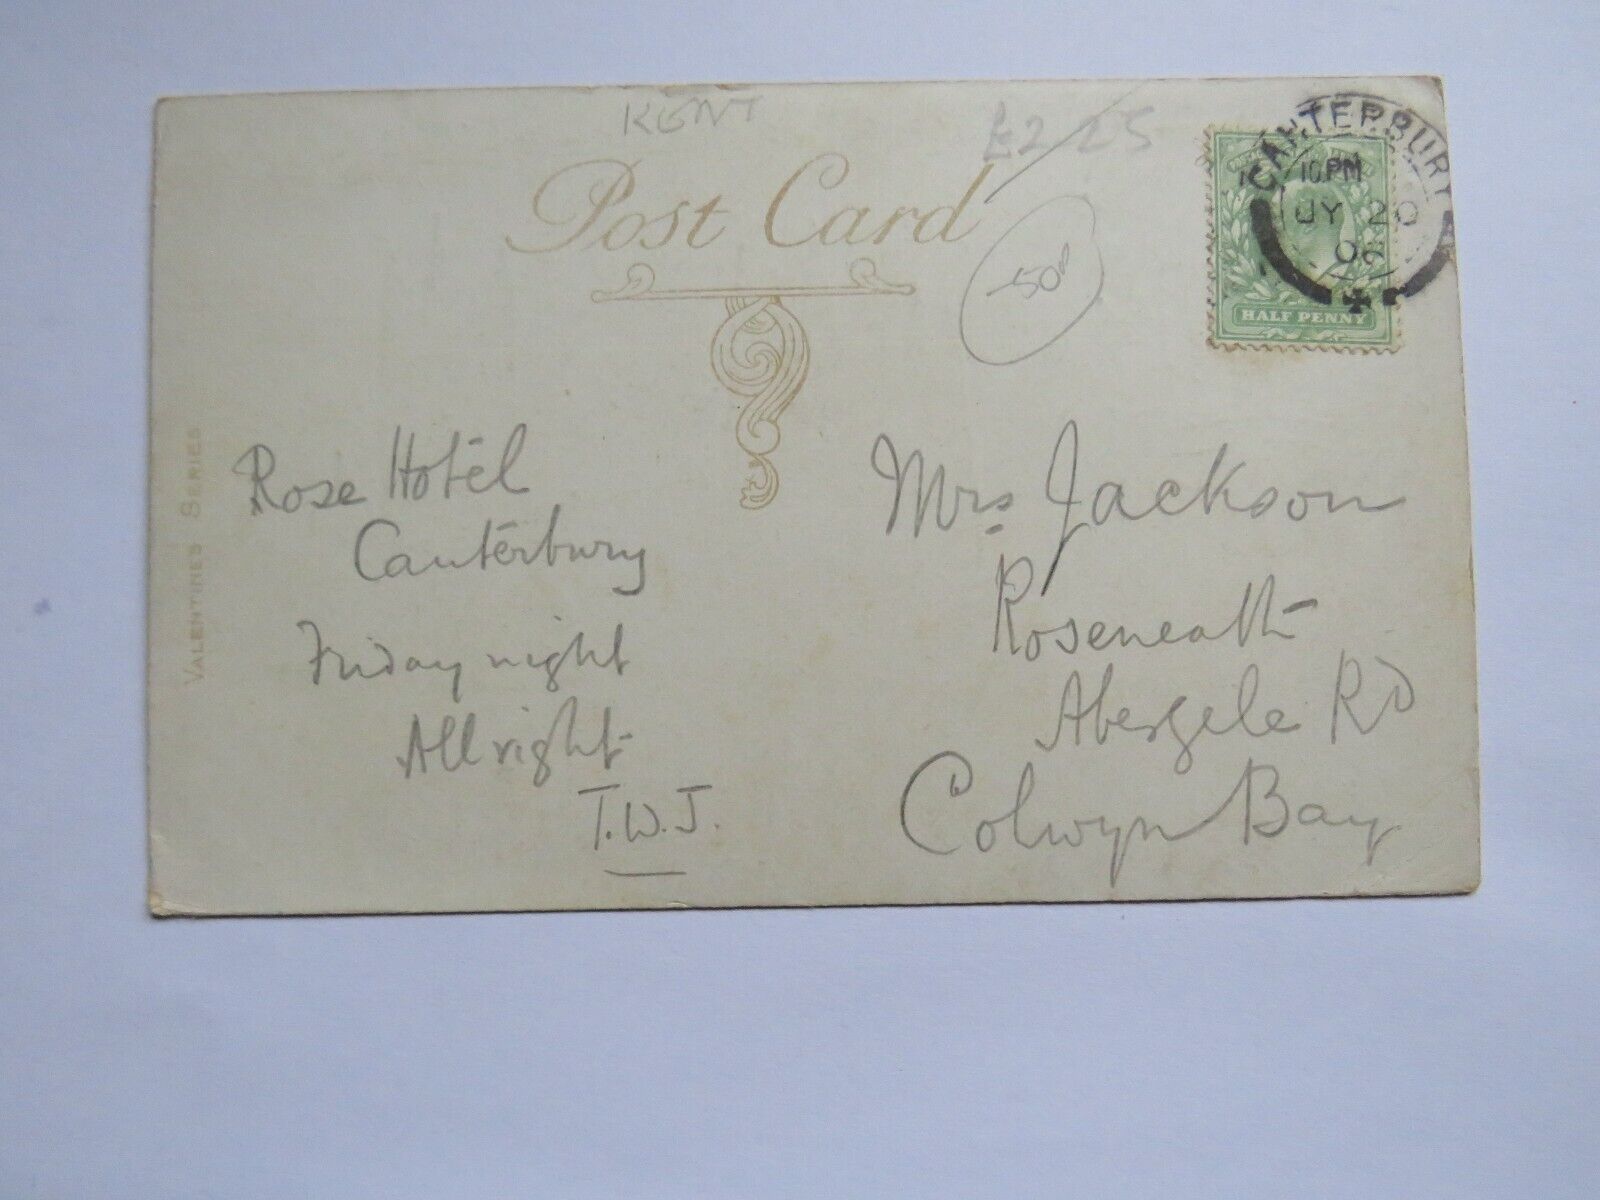 KENT
£2.25
Post Card
-50
CANTERBURY
10.PM
JY 20
06
HALF PENNY
VALENTINES SERIES
Rose Hotel
Canterbury
Friday night
All right
T.W.J.
Mrs Jackson
Roseneath
Abergele Rd
Colwyn Bay